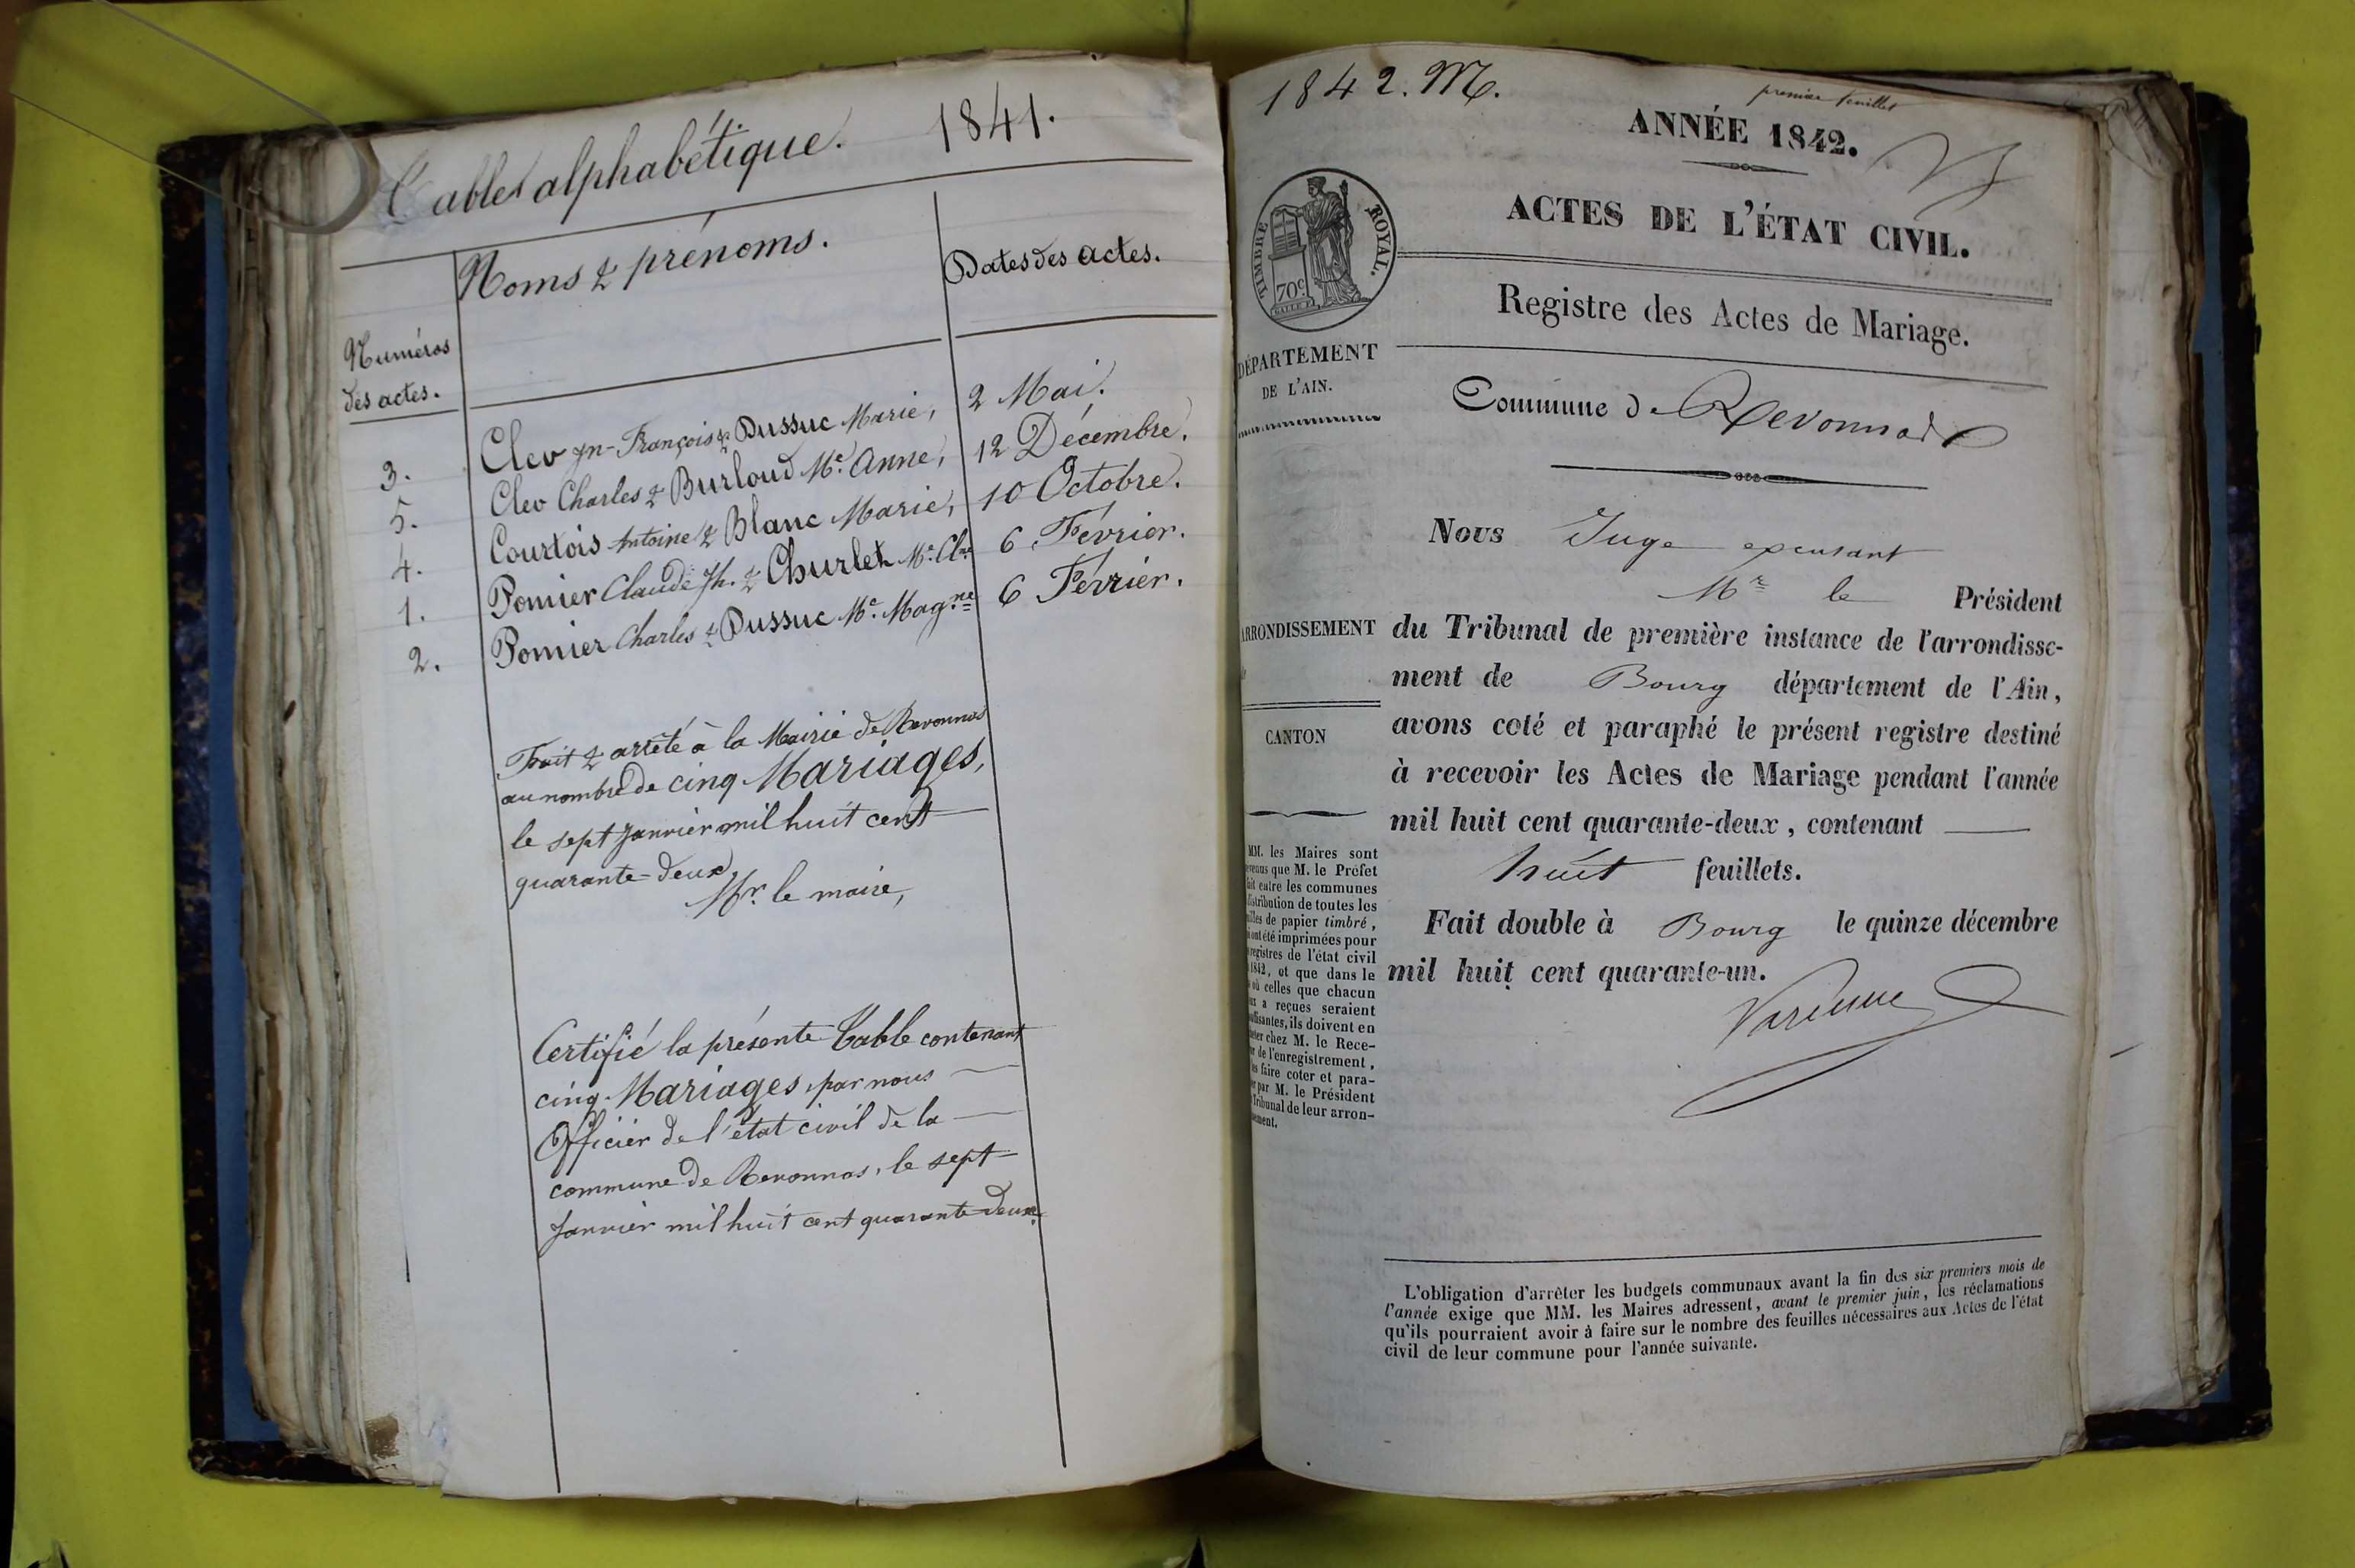 Table alphabétique. 1841.
Noms & prénoms.
Dates des actes.
Numéros
des actes.
3. Clev Jn-François & Dussuc Marie, 2 Mai.
5. Clev Charles & Burloud Me. Anne, 12 Décembre.
4. Courtois Antoine & Blanc Marie, 10 Octobre.
1. Pomier Claude Jh. & Churlet Me. Cl.ne 6 Février.
2. Pomier Charles & Dussuc Me. Magne 6 Février.
Fait & arrêté à la Mairie de Revonnas
au nombre de cinq Mariages,
le sept Janvier mil huit cent
quarante-deux,
Mr. le maire,
Certifié la présente Table contenant
cinq Mariages, par nous
Officier de l'état civil de la
commune de Revonnas, le sept
Janvier mil huit cent quarante-deux.
1842. M.
premier feuillet
ANNÉE 1842.
ACTES DE L'ÉTAT CIVIL.
TIMBRE ROYAL.
70c
Registre des Actes de Mariage.
DÉPARTEMENT
DE L'AIN.
Commune de Revonnas
Nous Juge
Mr le Président
ARRONDISSEMENT
du Tribunal de première instance de l'arrondisse-
ment de Bourg département de l'Ain,
CANTON
avons coté et paraphé le présent registre destiné
à recevoir les Actes de Mariage pendant l'année
mil huit cent quarante-deux, contenant
huit feuillets.
Fait double à Bourg le quinze décembre
mil huit cent quarante-un.
MM. les Maires sont
que M. le Préfet
fait entre les communes
distribution de toutes les
de papier timbré,
ont été imprimées pour
registres de l'état civil
1842, et que dans le
où celles que chacun
a reçues seraient
ils doivent en
chez M. le Rece-
de l'enregistrement,
faire coter et para-
par M. le Président
Tribunal de leur arron-
L'obligation d'arrêter les budgets communaux avant la fin des six premiers mois de
l'année exige que MM. les Maires adressent, avant le premier juin, les réclamations
qu'ils pourraient avoir à faire sur le nombre des feuilles nécessaires aux Actes de l'état
civil de leur commune pour l'année suivante.